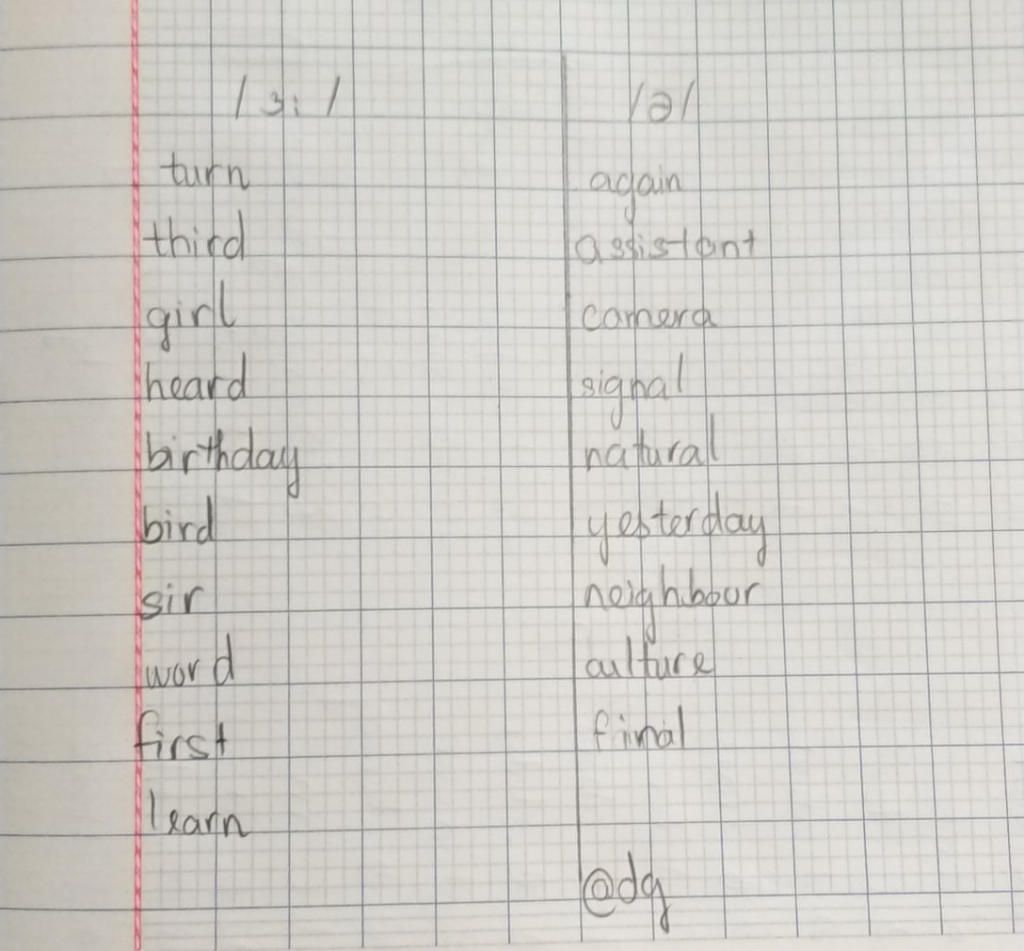 /ɜː/
turn
third
girl
heard
birthday
bird
sir
word
first
learn
/ə/
again
assistant
camera
signal
natural
yesterday
neighbour
culture
final
@dg